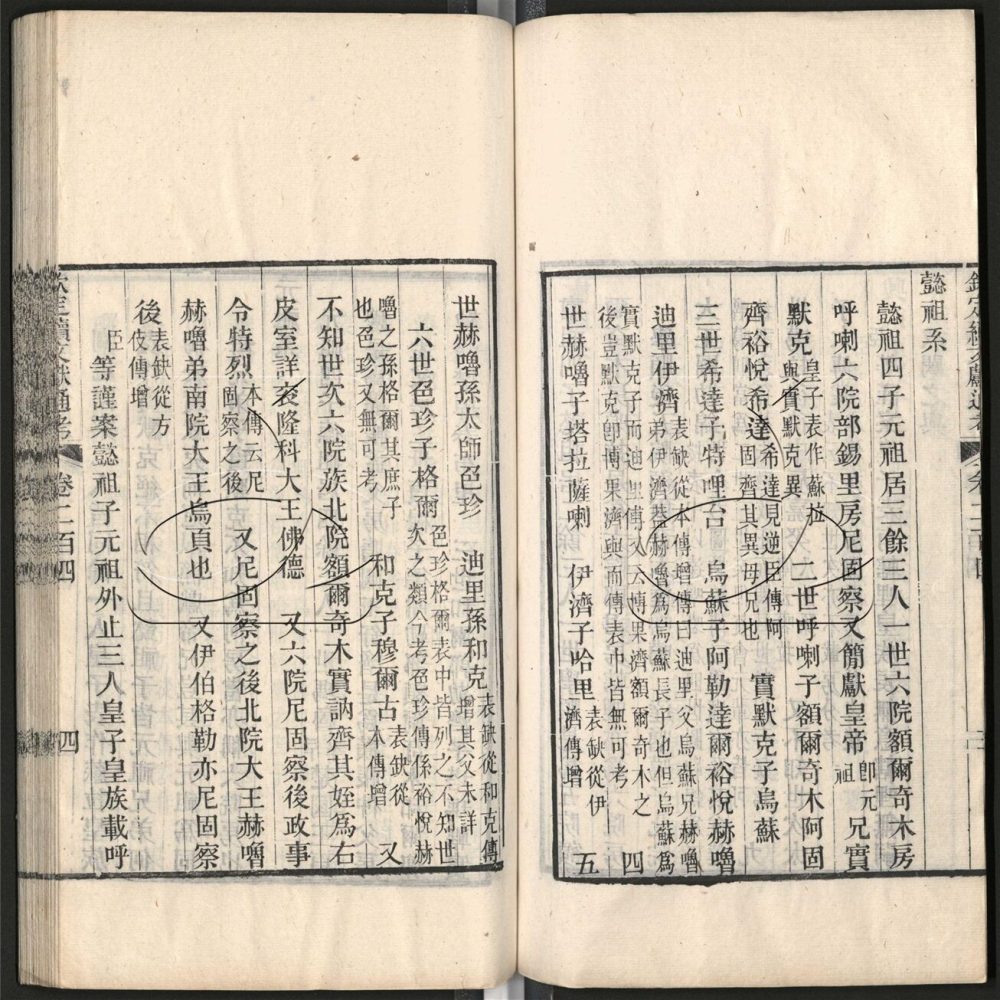 懿祖系
懿祖四子元祖居三餘三人一世六院額爾奇木房
呼喇六院部錫里房尼固察又簡獻皇帝即元祖兄實
默克皇子表作蘇拉與實默克異 二世呼喇子額爾奇木阿固
齊裕悅希達希達見逆臣傳阿固齊其異母兄也 實默克子烏蘇
三世希達子特哩台 烏蘇子阿勒達爾裕悅赫嚕
迪里伊濟表缺從本傳增傳曰迪里父烏蘇兄赫嚕弟伊濟葢赫嚕爲烏蘇長子也但烏蘇爲
實默克子而迪里傳又云博果濟額爾奇木之後豈默克卽博果濟與而傳表中皆無可考 四
世赫嚕子塔拉薩喇 伊濟子哈里表缺從伊濟傳增 五
世赫嚕孫太師色珍 迪里孫和克表缺從和克傳增其父未詳
六世色珍子格爾色珍格爾表中皆列之不知世次之類今考色珍傳係裕悅赫
嚕之孫格爾其庶子也色珍又無可考 和克子穆爾古表缺從本傳增 又
不知世次六院族北院額爾奇木實訥齊其姪爲右
皮室詳袞隆科大王佛德 又六院尼固察後政事
令特烈本傳云尼固察之後 又尼固察之後北院大王赫嚕
赫嚕弟南院大王烏頁也 又伊伯格勒亦尼固察
後表缺從方伎傳增
臣等謹案懿祖子元祖外止三人皇子皇族載呼
卷二百四
四